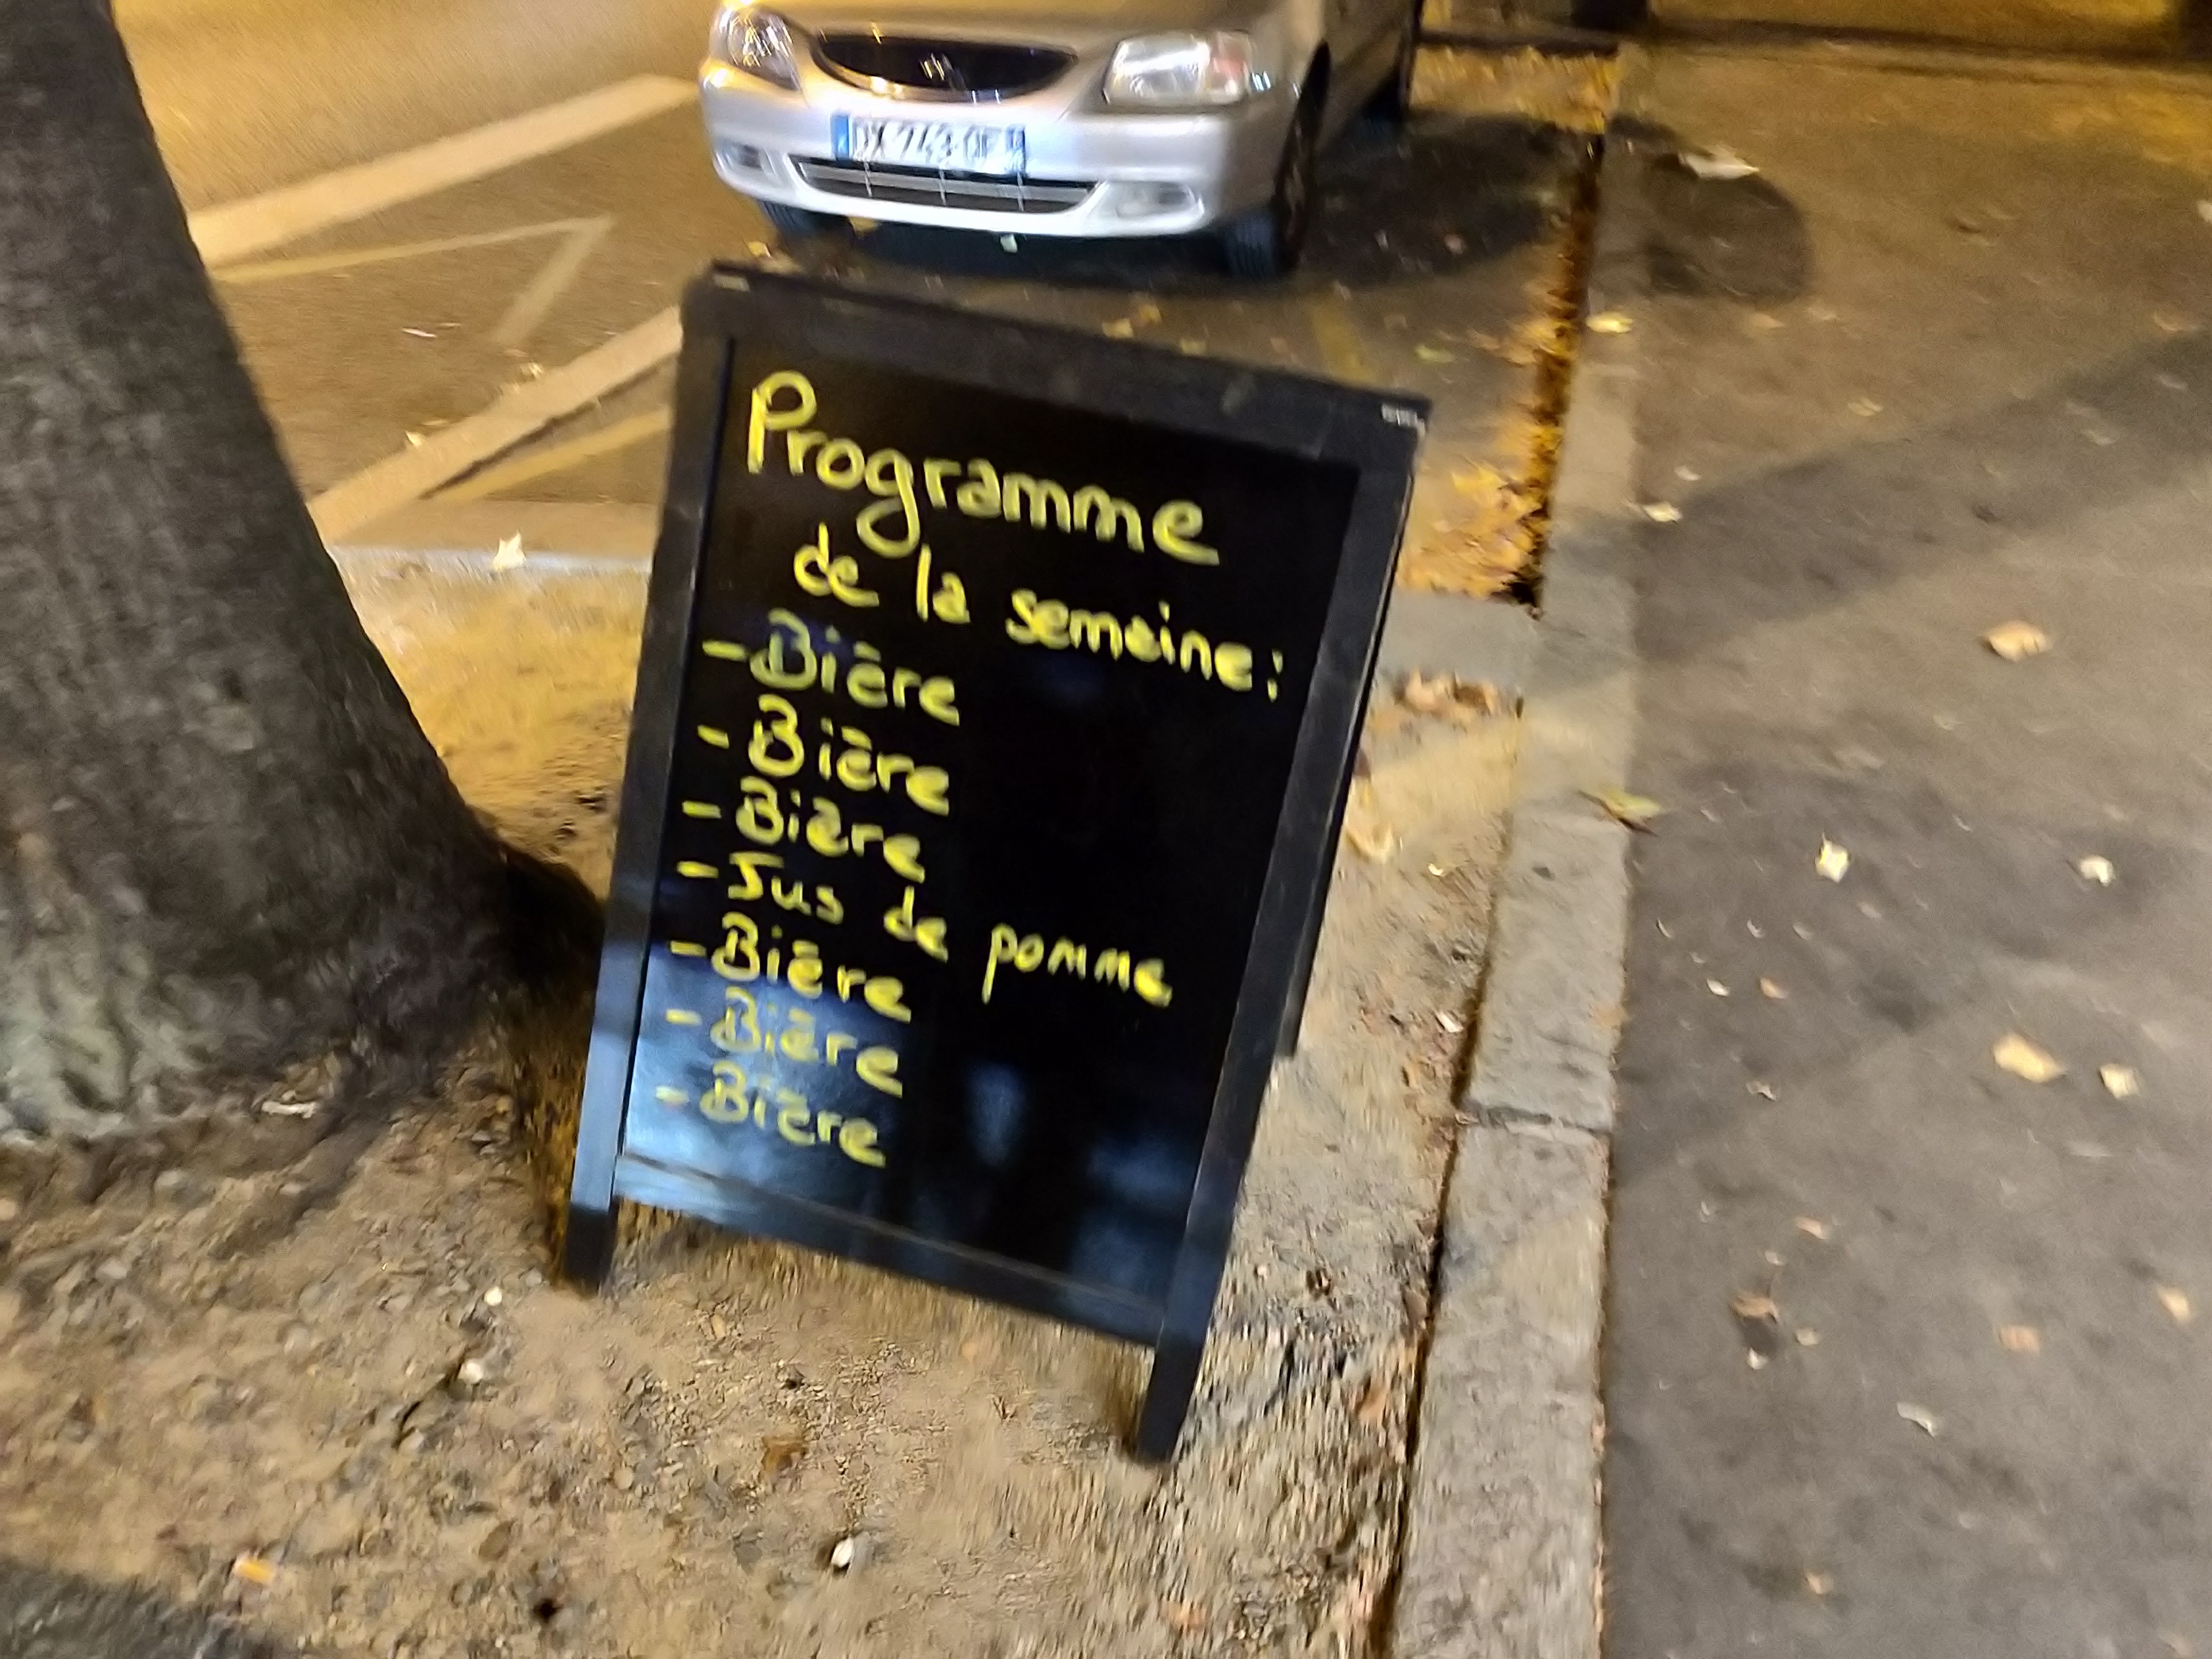 Programme
de la semaine :
- Bière
- Bière
- Bière
- Jus de pomme
- Bière
- Bière
- Bière